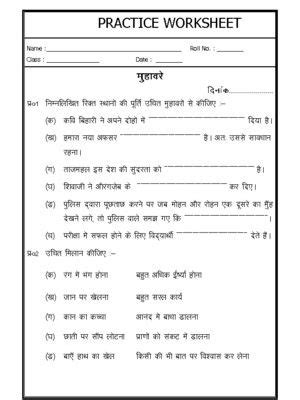 PRACTICE WORKSHEET
Name : Roll No. :
Class : Date :
मुहावरे
दिनांक
प्र०1 निम्नलिखित रिक्त स्थानों की पूर्ति उचित मुहावरों से कीजिए :–
(क) कवि बिहारी ने अपने दोहों में दिया है।
(ख) हमारा नया अफसर है। अतः उससे सावधान
रहना।
(ग) ताजमहल इस देश की सुन्दरता को है।
(घ) शिवाजी ने औरंगजेब के कर दिए।
(ड) पुलिस द्वारा पूछताछ करने पर जब मोहन और रोहन एक दूसरे का मुँह
देखने लगे, तो पुलिस वाले समझ गए कि
(च) परीक्षा में सफल होने के लिए विद्यार्थी है।
प्र०2 उचित मिलान कीजिए :–
(क) रंग में भंग होना बहुत अधिक ईर्ष्या होना
(ख) जान पर खेलना बहुत सरल कार्य
(ग) कान का कच्चा आनंद में बाधा डालना
(घ) छाती पर साँप लोटना प्राणों को संकट में डालना
(ड) बाएँ हाथ का खेल किसी की भी बात पर विश्वास कर लेना